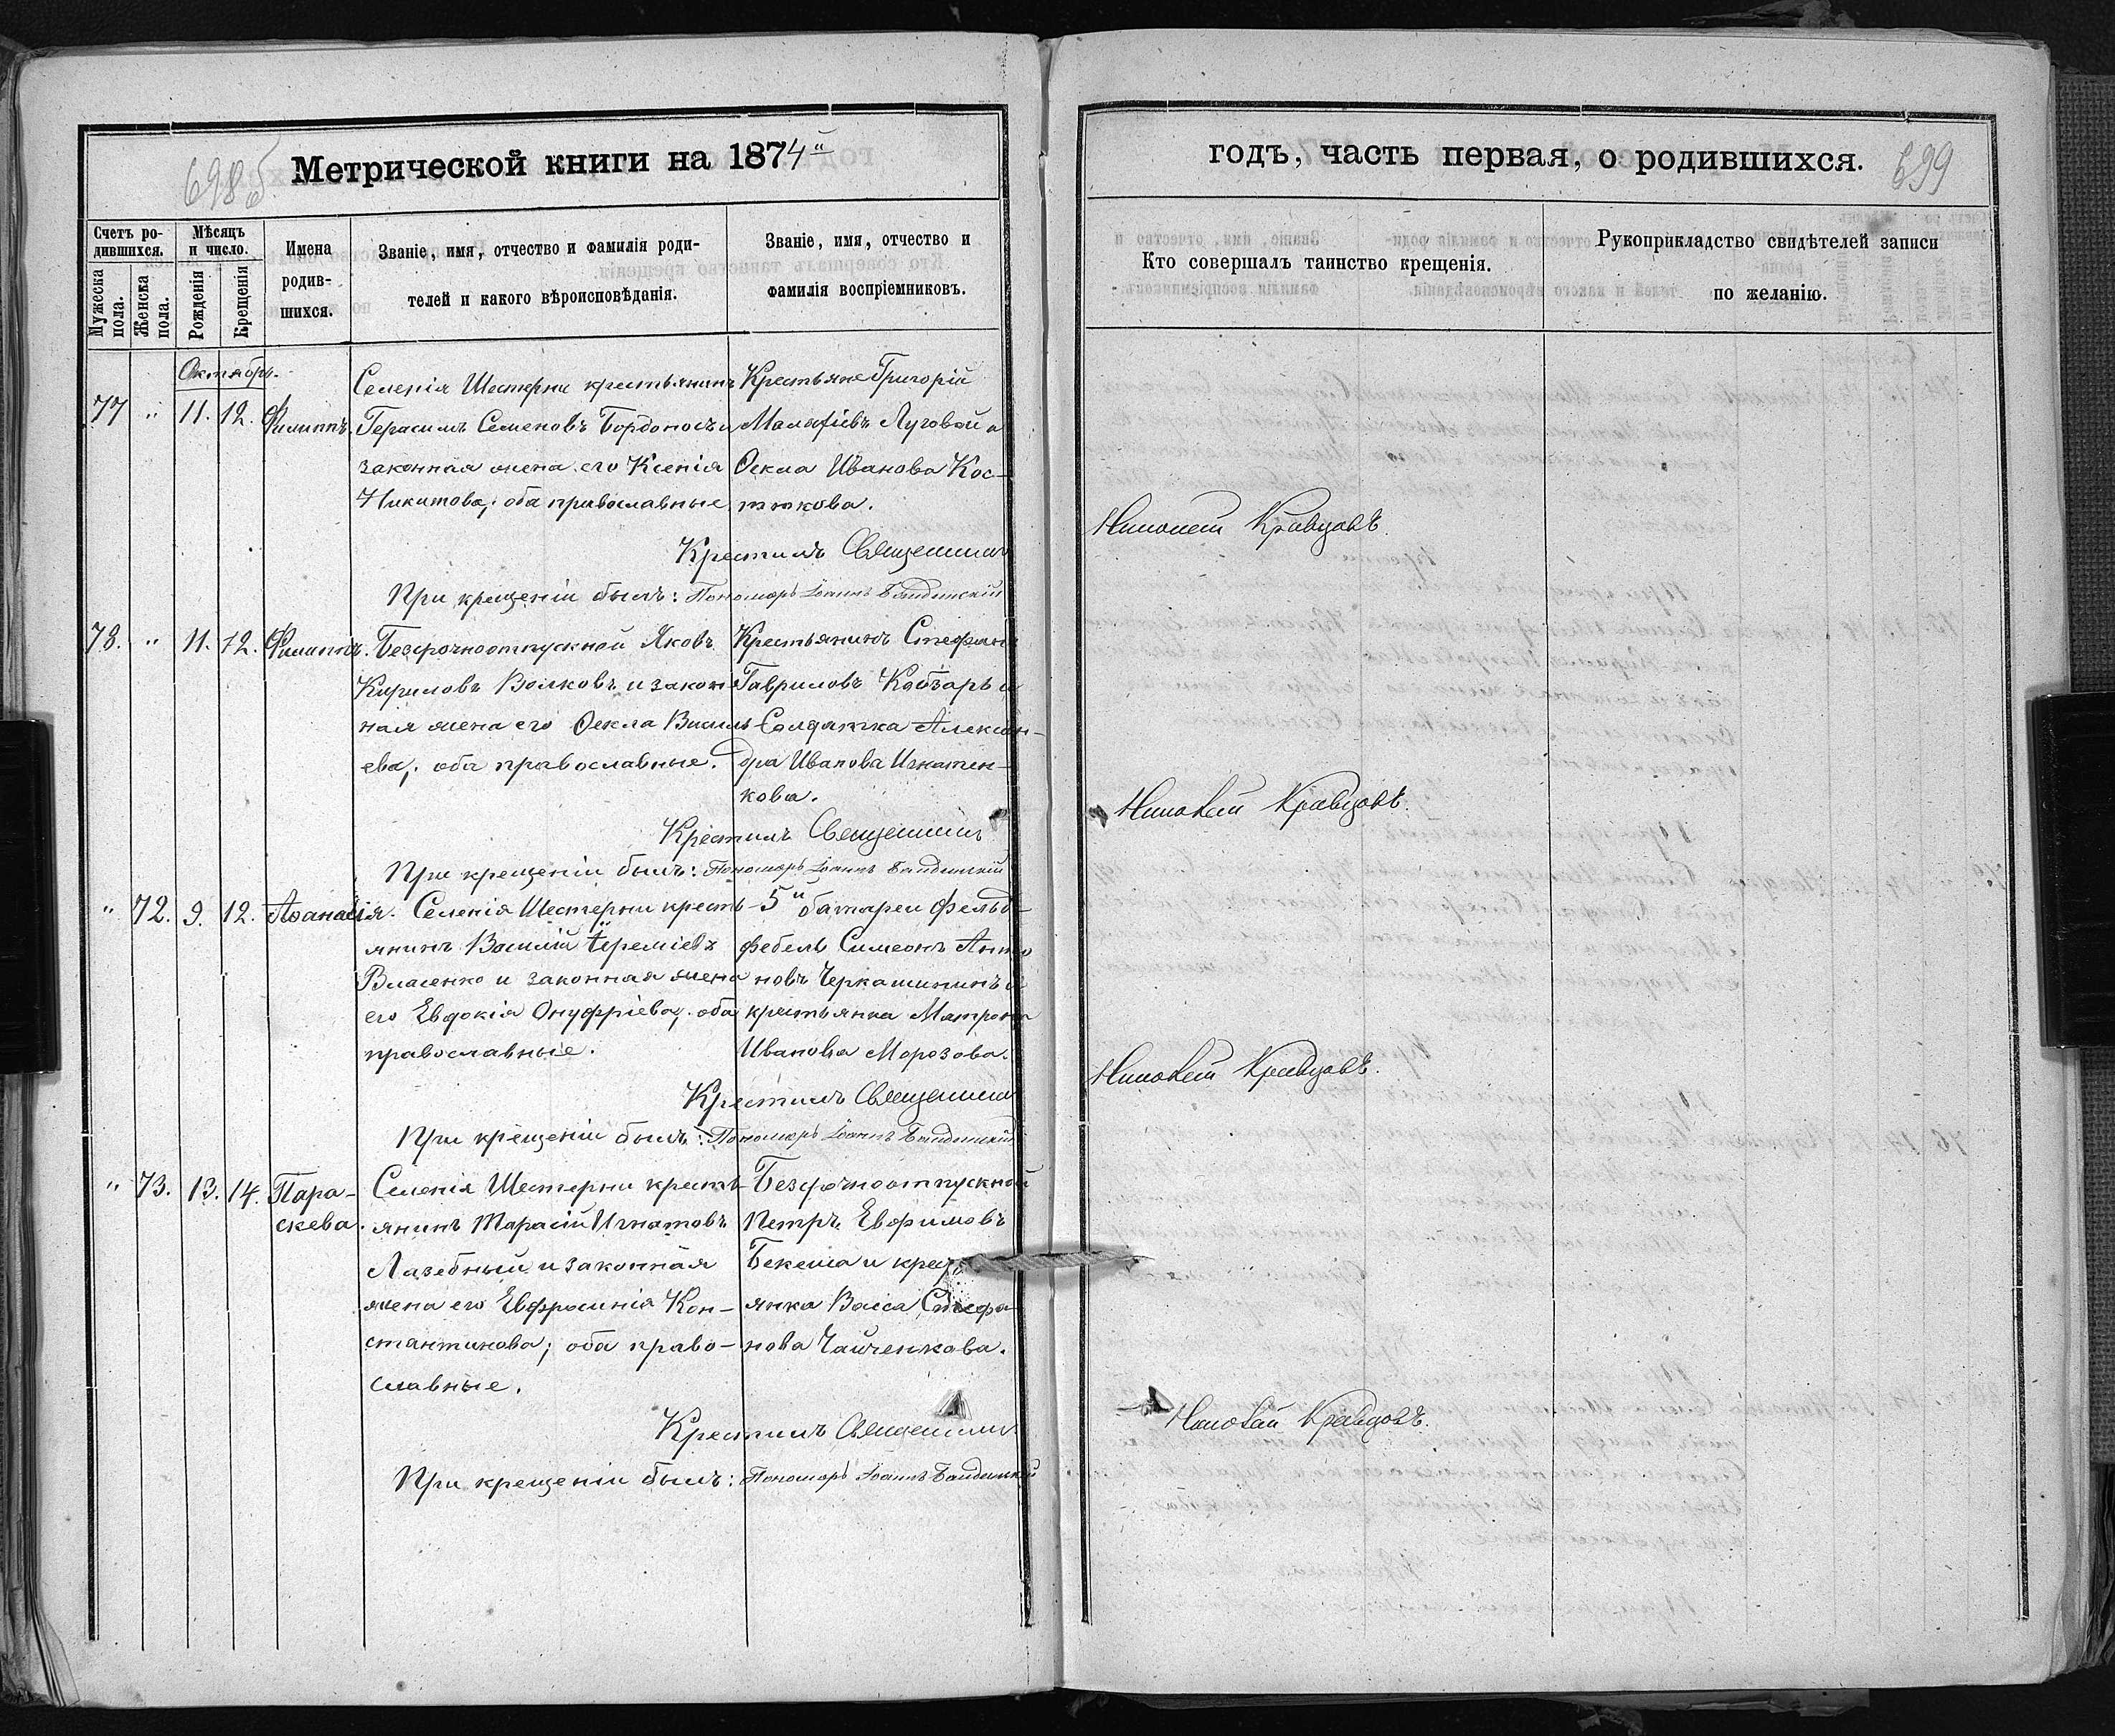 698 б Метрической книги на 1874й
годъ, часть первая, о родившихся. 699
Счетъ родившихся.
Мужеска пола.
Женска пола.
Мѣсяцъ и число.
Рожденія
Крещенія
Имена родив-
шихся.
Званіе, имя, отчество и фамилія роди-
телей и какого вѣроисповѣданія.
Званіе, имя, отчество и
фамилія воспріемниковъ.
Кто совершалъ таинство крещенія.
Рукоприкладство свидѣтелей записи
по желанію.
Октябрь.
77 " 11. 12. Филиппъ.
Селенія Шестерни крестьянинъ
Герасимъ Семеновъ Бордоносъ и
законная жена его Ксенія
Никитова; оба православные
Крестьяне Григорій
Малафіевъ Луговой и
Ѳекла Иванова Кос-
тюкова.
Крестилъ Священникъ
Кравцовъ.
При крещеніи былъ: Пономарь Іоаннъ
78. " 11. 12. Филиппъ.
Безсрочноотпускной Яковъ
Кириловъ Волковъ и закон-
ная жена его Ѳекла Василь-
ева; оба православные.
Крестьянинъ Стефанъ
Гавриловъ Кобзарь и
Солдатка Алексан-
дра Иванова Игнатен-
кова.
Крестилъ Священникъ
Кравцовъ.
При крещеніи былъ: Пономарь Іоаннъ
" 72. 9. 12. Аѳанасія.
Селенія Шестерни кресть-
янинъ Василій Іереміевъ
Власенко и законная жена
его Евдокія Онуфріева; оба
православные.
5й батареи Фельд-
фебель Симеонъ Анто
новъ Черкашининъ и
крестьянка Матрона
Иванова Морозова.
Крестилъ Священникъ
Кравцовъ.
При крещеніи былъ: Пономарь Іоаннъ
" 73. 13. 14. Пара-
скева.
Селенія Шестерни кресть-
янинъ Тарасій Игнатовъ
Лазебный и законная
жена его Евфросинія Кон-
стантинова; оба право-
славные.
Безсрочноотпускной
Петръ Евфимовъ
Бекеша и крес
янка Васса Стефа-
нова Чайченкова.
Крестилъ Священникъ
Кравцовъ.
При крещеніи былъ: Пономарь Іоаннъ